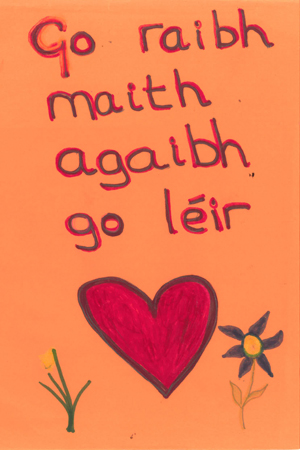 Go raibh
maith
agaibh
go léir